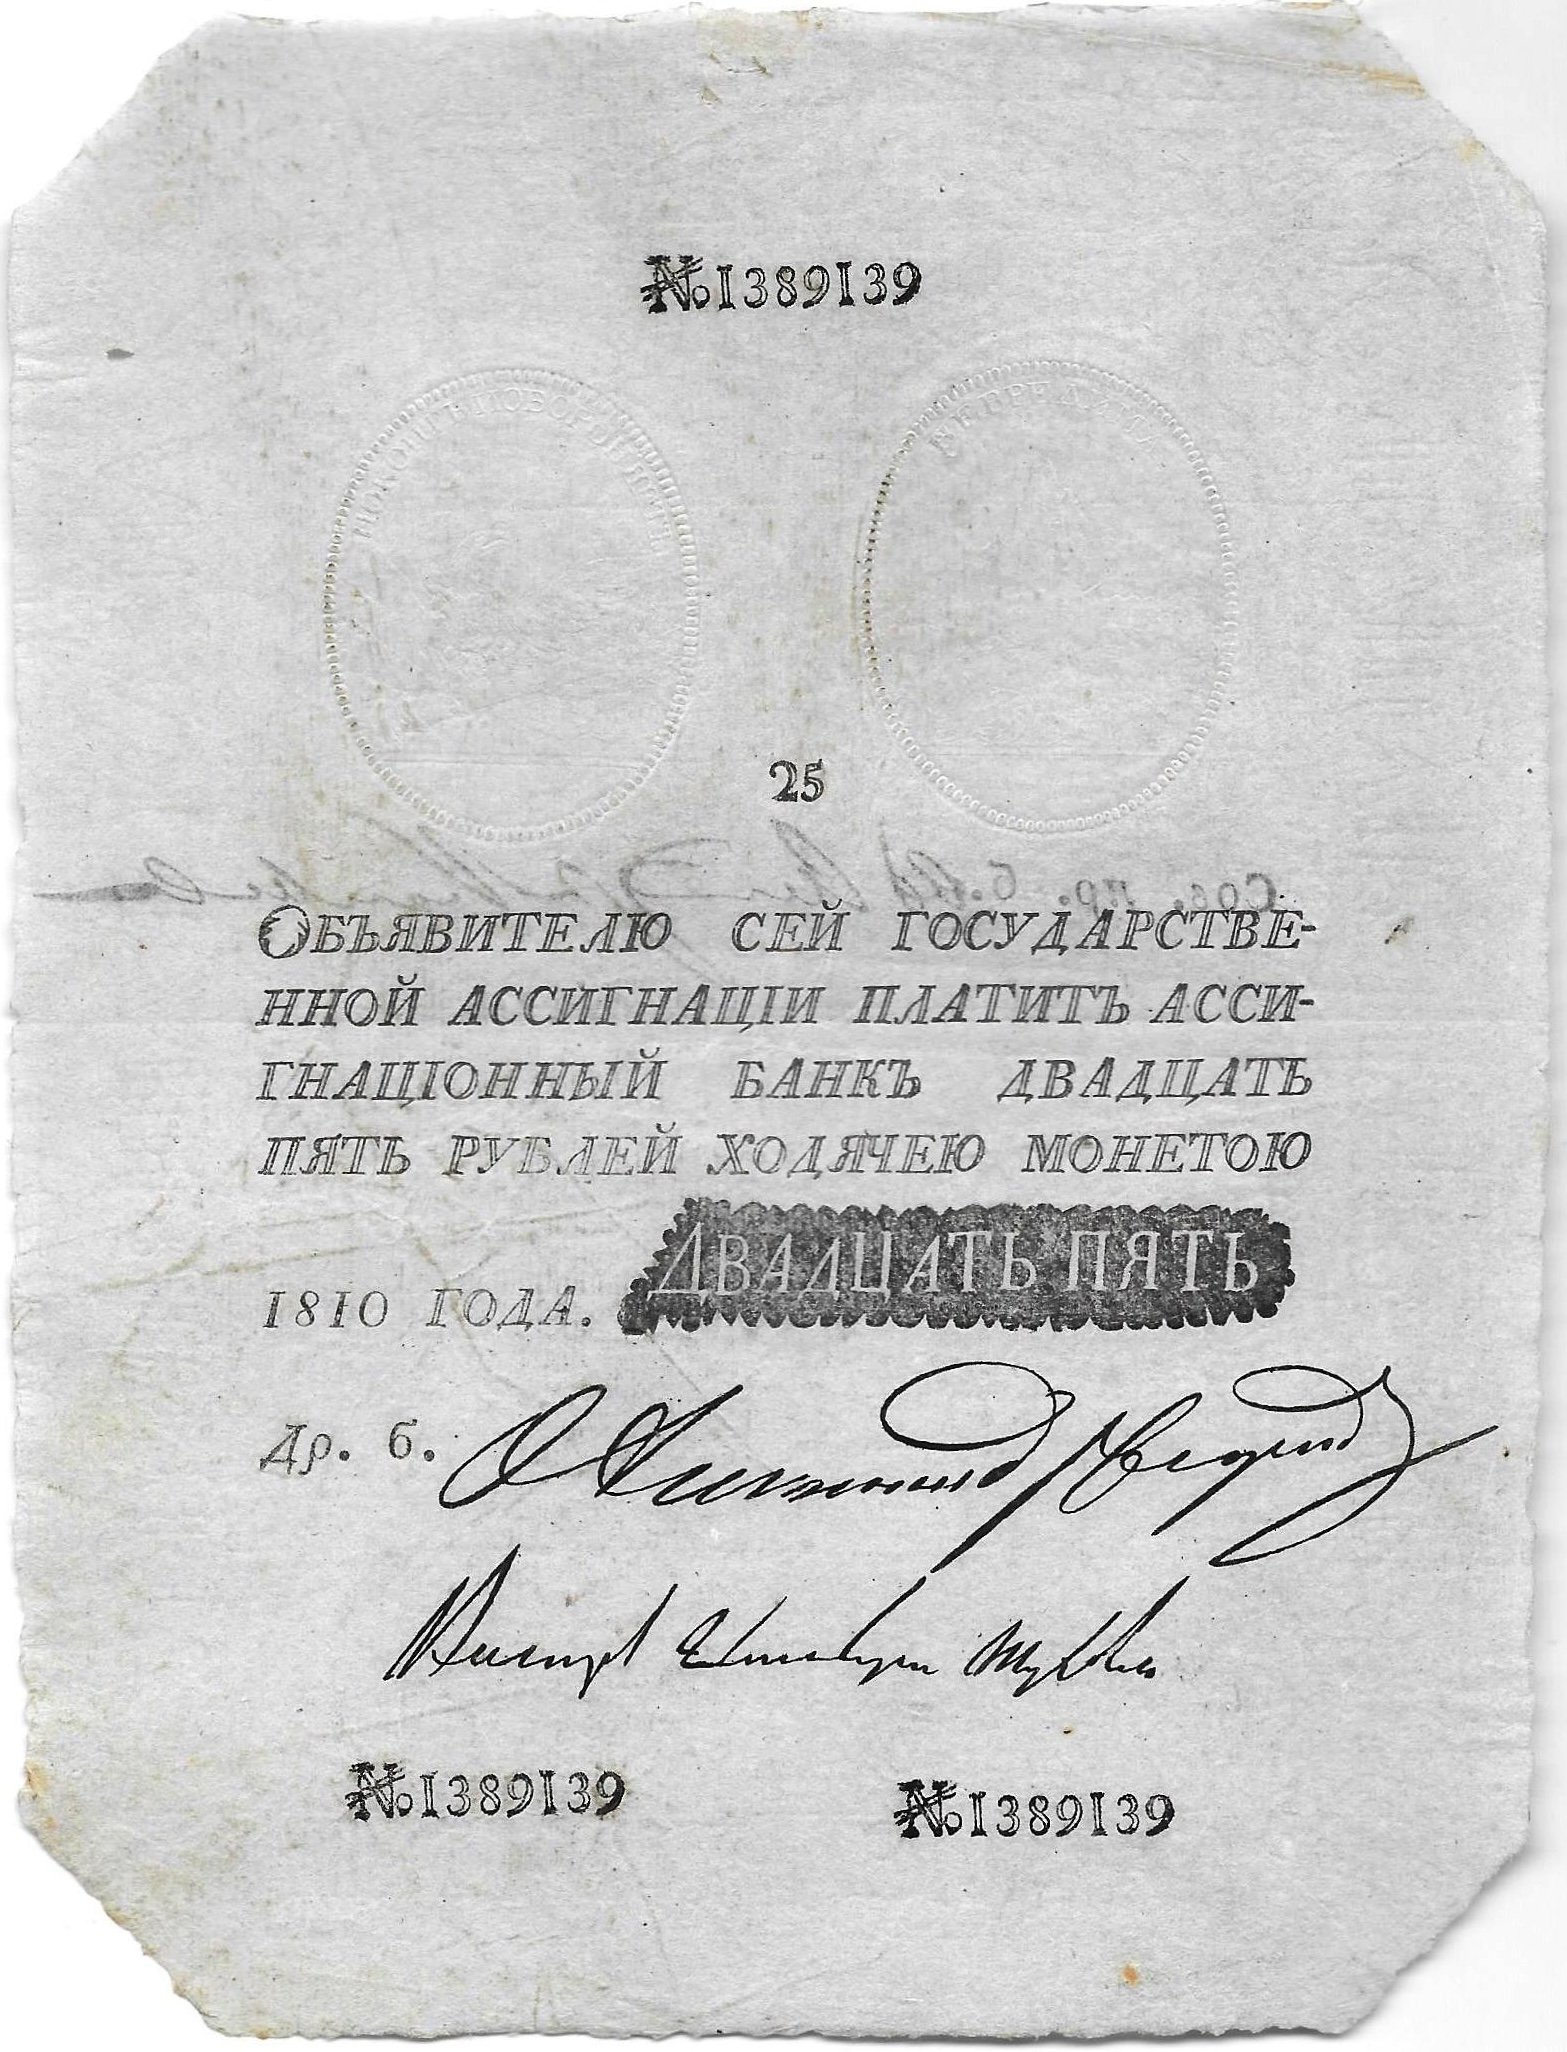 № 1389139
ПОКОИТ И ОБОРОНЯЕТЪ
25
ОБЪЯВИТЕЛЮ СЕЙ ГОСУДАРСТВЕ-
ННОЙ АССИГНАЦІИ ПЛАТИТЪ АССИ-
ГНАЦІОННЫЙ БАНКЪ ДВАДЦАТЬ
ПЯТЬ РУБЛЕЙ ХОДЯЧЕЮ МОНЕТОЮ
1810 ГОДА. ДВАДЦАТЬ ПЯТЬ
Др. б.
№ 1389139 № 1389139